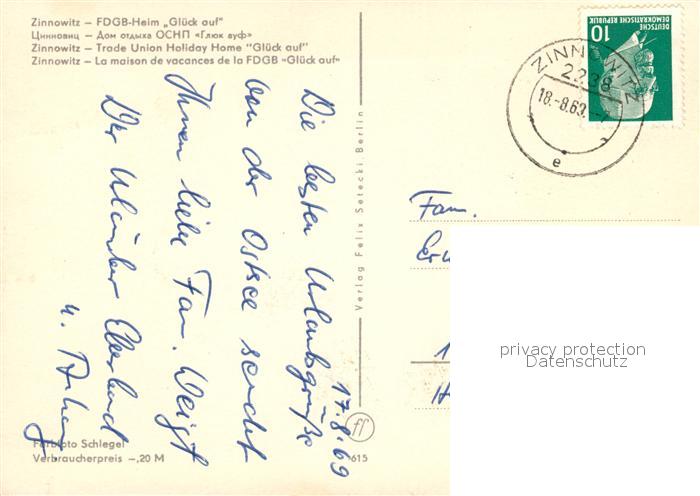 Zinnowitz – FDGB-Heim „Glück auf"
Цинновиц – Дом отдыха ОСНП «Глюк ауф»
Zinnowitz – Trade Union Holiday Home "Glück auf"
Zinnowitz – La maison de vacances de la FDGB «Glück auf»
17.8.69
Die besten Urlaubsgrüße
von der Ostsee sendet
Ihnen liebe Fam. Weigt
Der Urlauber Eberhard
u.
Farbfoto Schlegel
Verbraucherpreis –,20 M
Verlag Felix Setecki, Berlin
ff
615
DEUTSCHE DEMOKRATISCHE REPUBLIK
10
ZINNOWITZ
2238
18.-8.69
e
Fam.
privacy protection
Datenschutz